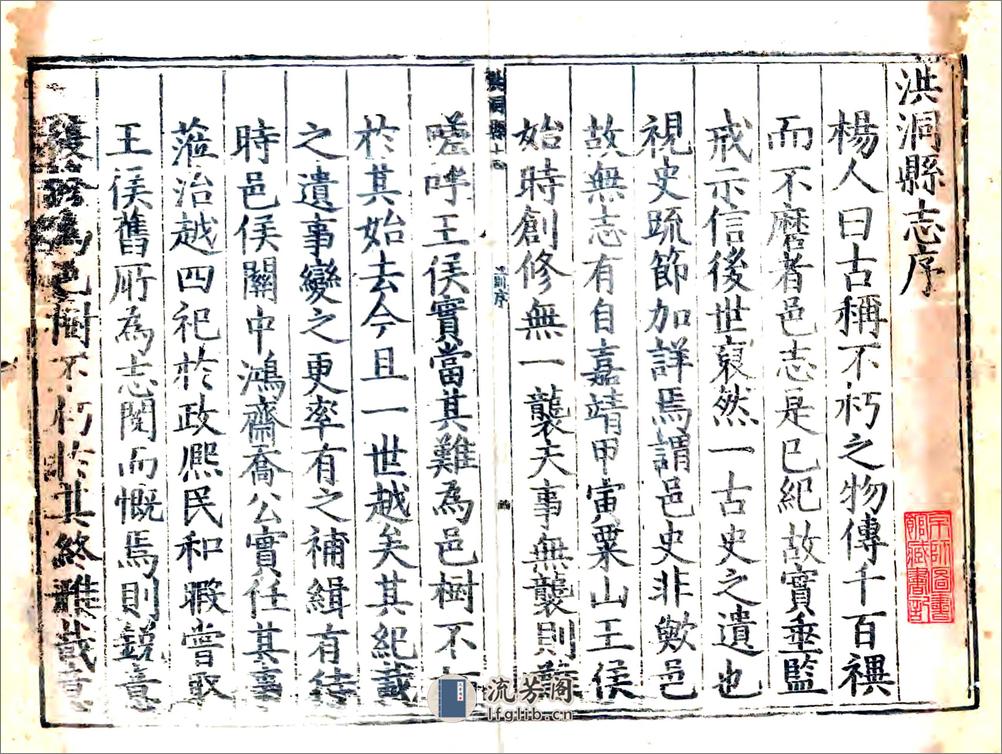 洪洞縣志序
楊人曰古稱不朽之物傳千百禩
而不磨者邑志是已紀故實垂監
戒示信後世裒然一古史之遺也
視史疏節加詳焉謂邑史非歟邑
故無志有自嘉靖甲寅粟山王侯
始時創修無一襲夫事無襲則難
嗟呼王侯實當其難為邑樹不
於其始去今且一世越矣其紀載
之遺事變之更率有之補緝有待
時邑侯關中鴻齋喬公實任其事
蒞治越四祀於政熈民和暇嘗取
王侯舊所為志閱而慨焉則銳意
為邑樹不朽於其終雖載
洪洞縣志
序
流芳阁
lfglib.cn